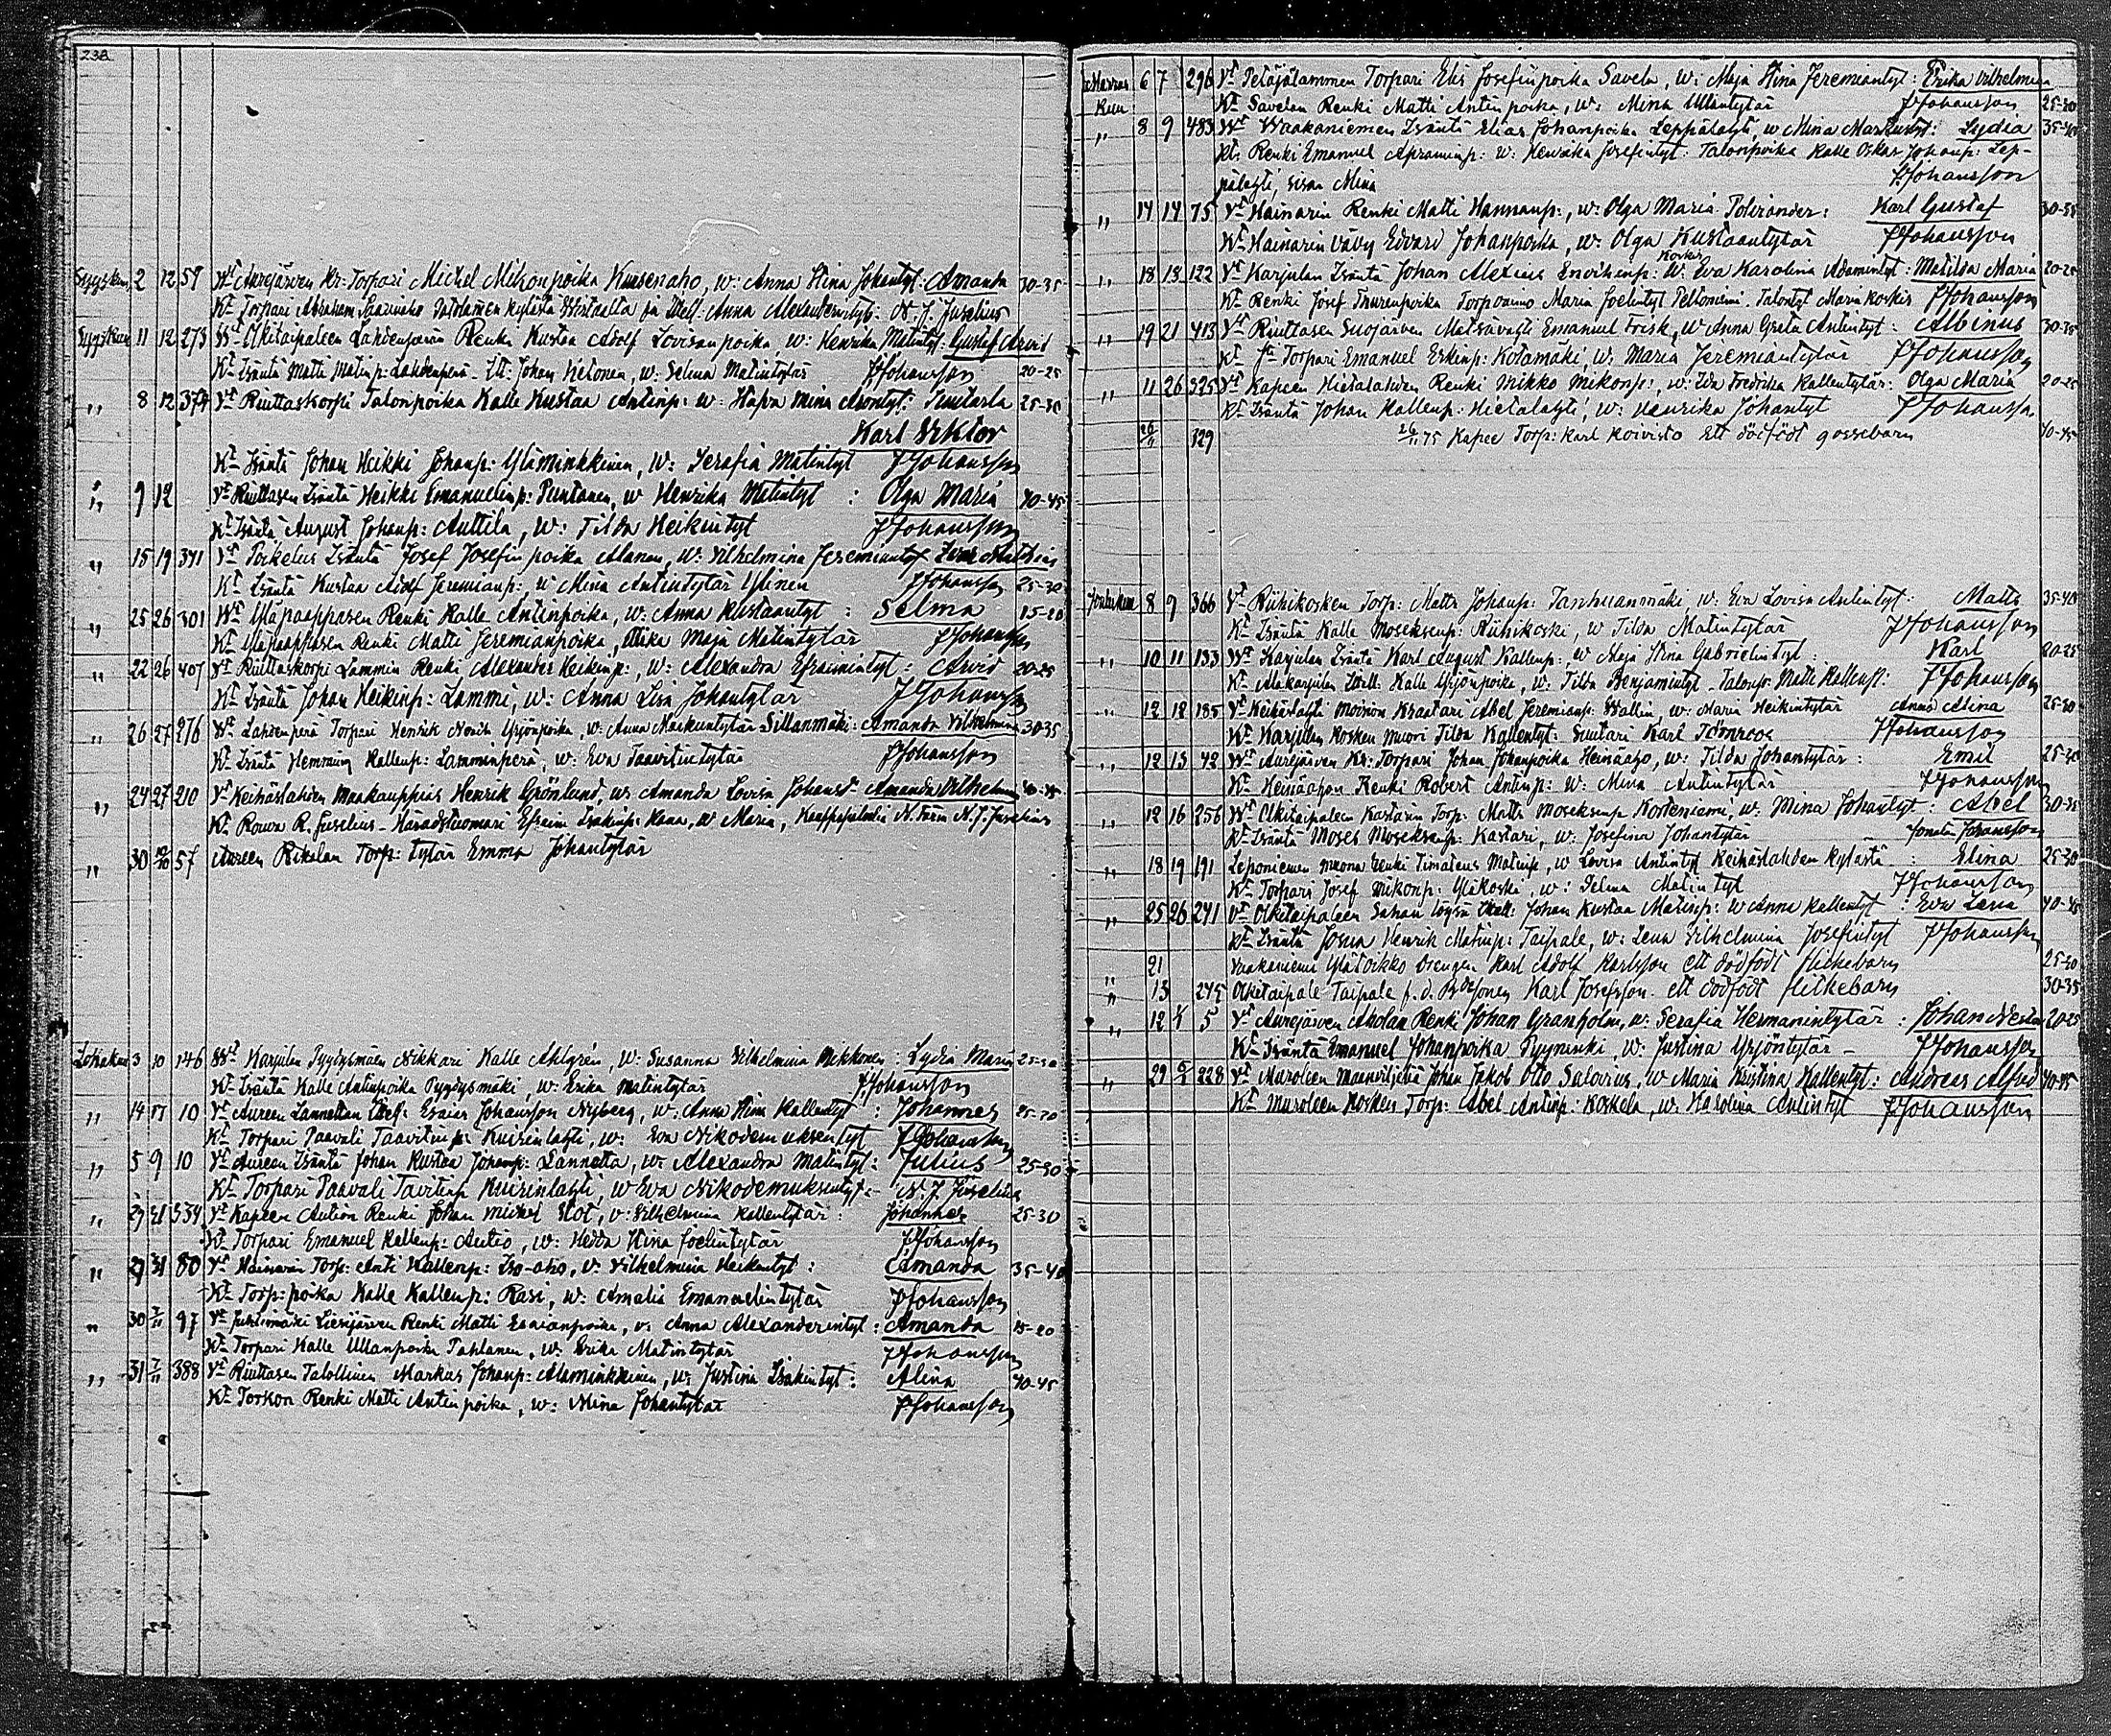 238
Syyskuu 2 12 59 Vt Aurejärven Kr: Torpari Michel Mikonpoika Kuusenaho, w: Anna Stina Johantyt: Amanda 30-35
Kt Torpari Abraham Saariaho Vaholamen kylästä Wirtaelta ja Anna Alexanderintyt: N. J. Juselius
Syyskuu 11 12 273 Vt Olkitaipaleen Lahdenperän Renki Kustaa Adolf Lovisanpoika w: Henrika Matintyt: Gustaf Arvid
Kt Isäntä Matti Matinp: Lahdenperä - Johan Hetonen, w. Selma Matintytär JJohansson 20-25
" 8 12 374 Vt Riuttaskorpi Talonpoika Kalle Kustaa Antinp: w: Maja Mina Aarontyt: 25-30
Karl Viktor
Kt Isäntä Johan Heikki Johanp: Yläminkkinen, w: Serafia Matintyt JJohansson
" 9 12 Vt Riuttasen Isäntä Heikki Emanuelinp: Puntanen, w Henrika Matintyt : Olga Maria 40-45
Kt Isäntä August Johanp: Anttila, w: Tilda Heikintyt JJohansson
" 15 19 371 Vt Isäntä Josef Josefinpoika Alanen, w: Vilhelmina Jeremiantyt
Kt Isäntä Kustaa Adolf Jeremianp: w Mina Antintytär Ylinen JJohansson 25-30
" 25 26 301 Vt Yläpaappasen Renki Kalle Antinpoika, w: Anna Kustaantyt : Selma 15-20
Kt Yläpaappasen Renki Matti Jeremianpoika, Maja Matintytär JJohansson
" 22 26 407 Vt Riuttaskorpi Lammin Renki Alexander Heikinp:, w: Alexandra Efraimintyt: Arvid 20-25
Kt Isäntä Johan Heikinp: Lammi, w: Anna Lisa Johantytär JJohansson
" 26 27 276 Vt Lahdenperä Torpari Henrik Yrjönpoika, w: Anna Maskuntytär Sillanmäki: Amanda Vilhelmina 30-35
Kt Isäntä Hemming Kallenp: Lamminperä, w: Eva Taavitintytär JJohansson
" 24 27 210 Vt Keihäslahden Maakauppias Henrik Grönlund, w: Amanda Lovisa Johansd: Amanda Vilhelmina
Kt Rouva R. Juselius - Häradstuomari Efraim Isakinp: Hana, w Maria, Kauppapalvelia N. J. Juselius
" 30 57 Aureen Rikalan Torp: tytär Emma Johantytär
Lokakuu 3 10 146 Vt Karjulan Pyydysmäen Nikkari Kalle Ahlgrén, w: Susanna Vilhelmina Mikkonen: Lydia Maria 25-30
Kt Isäntä Kalle Antinpoika Pyydysmäki, w: Erika Matintytär JJohansson
" 14 17 10 Vt Aureen Lannettan Esaias Johansson Nyberg, w: Anna Stina Kallentyt : Johannes
Kt Torpari Paavali Taavitinp: Kuirinlahti, w: Eva Nikodemuksentyt JJohansson
" 5 9 10 Vt Aureen Isäntä Johan Kustaa Johanp: Lannetta, w: Alexandra Matintyt: Julius 25-30
Kt Torpari Paavali Tavitinp Kuirinlahti, w Eva Nikodemuksentyt - N. J. Juselius
" 29 31 334 Vt Kapeen Aution Renki Johan Michel Slot, v: Vilhelmina Kallentytär: Johannes 25-30
Kt Torpari Emanuel Kallenp: Autio, w: Hedda Stina Joelintytär JJohansson
" 29 31 80 Vt Hainarin Torp: Anti Kallenp: Iso-aho, v: Vilhelmina Heikintyt: Amanda 35-40
Kt Torp: poika Kalle Kallenp: Rasi, w: Amalia Emanuelintytär JJohansson
" 30 7/11 97 Vt Juhtimäki Liesijärven Renki Matti Esaianpoika, v: Anna Alexanderintyt: Amanda 15-20
Kt Torpari Kalle Ullanpoika Pahlanen, w: Erika Matintytär JJohansson
" 31 7/11 388 Vt Riuttasen Talollinen Markus Johanp: Alaminkkinen, w: Justina Isakintyt: Alina 40-45
Kt Torkon Renki Matti Antinpoika, w: Mina Johantytär JJohansson
Marraskuu 6 7 296 Vt Petäjälammen Torpari Elis Josefinpoika Savela, w: Maja Stina Jeremiantyt: Erika Vilhelmina
Kt Savelan Renki Matti Antinpoika, w: Mina Ullantytär JJohansson 25-30
" 8 9 483 Vt Waakaniemen Isäntä Elias Johanpoika Leppälahti, w Mina Markuntyt: Lydia 35-40
Kt. Renki Emanuel Apraminp: w: Henrika Josefintyt: Talonpoika Kalle Oskar Johanp: Lep-
pälahti, sisar Mina JJohansson
" 14 14 75 Vt Hainarin Renki Matti Hannanp:, w: Olga Maria Polviander: Karl Gustaf 30-35
Kt Hainarin vävy Edvard Johanpoika, w: Olga Kustaantytär JJohansson
" 18 19 122 Vt Karjulan Isäntä Johan Alexius Enorkinp: Koskis w: Eva Karolina Adamintyt: Matilda Maria 20-25
Kt Renki Josef Thurenpoika Torpoanno Maria Joelintyt Peltoniemi. Talontyt Maria Koskis JJohansson
" 19 21 413 Vt Riuttasen Suojärven Metsävahti Emanuel Frisk, w Anna Greta Antintyt: Albinus 30-35
Kt Torpari Emanuel Erkinp: Kotamäki, w: Maria Jeremiantytär JJohansson
" 11 26 325 Vt Kapeen Hietalahden Renki Mikko Mikonp:, w: Ida Fredrika Kallentytär: Olga Maria 20-25
Kt Isäntä Johan Kallenp: Hietalahti, w: Henrika Johantyt JJohansson
26/11 329 26/11 75 Kapee Torp: Karl Koivisto Ett dödfödt gossebarn 40-45
Joulukuu 8 9 366 Vt Riihikosken Torp: Matts Johanp: Tanhuanmäki, w: Eva Lovisa Antintyt: Matts 35-40
Kt Isäntä Kalle Moseksenp: Riihikoski, w Tilda Matintytär JJohansson
" 10 11 133 Vt Karjulan Isäntä Karl August Kallenp:, w Maja Stina Gabrielintyt: Karl 20-25
Kt Alakarjulan Kalle Yrjönpoika, w: Tilda Benjamintyt - Talonp: Matti Kallenp: JJohansson
" 12 12 185 Vt Keihäslahti Moision Kraatari Abel Jeremianp: Wallin, w: Maria Heikintytär Anna Alina 25-30
Kt Karjulan Kosken muori Tilda Kallentyt: Suutari Karl Törnroos JJohansson
" 12 13 42 Vt Aurejärven Kr: Torpari Johan Johanpoika Heinäaho, w: Tilda Johantytär: Emil 25-30
Kt Heinäahon Renki Robert Antinp: w: Mina Antintytär JJohansson
" 12 16 256 Vt Olkitaipaleen Kastarin Torp: Matts Moseksenp Korteniemi, w: Mina Johantyt: Abel 30-35
Kt Isäntä Moses Moseksenp: Kastari, w: Josefina Johantytär Jonatan Johansson
" 18 19 191 Leponiemen Renki Timoteus Matinp, w Lovisa Antintyt Keihäslahden kylästä : Elina 25-30
Kt Torpari Josef Mikonp: Yläkoski, w: Selma Matintyt JJohansson
" 25 26 241 Vt Olkitaipaleen Sahan löysä Johan Kustaa Matinp: w Anna Kallentyt : Eva Lena 40-45
Kt Isäntä Josua Henrik Matinp: Taipale, w: Lena Vilhelmina Josefintyt JJohansson
" 21 Vaakaniemi Ylätoikko Drengen Karl Adolf Karlsson ett dödfödt flickebarn 25-30
" 13 245 Olkitaipale Taipale f. d. Bdesonen Karl Josefsson ett dödfödt flickebarn 30-35
" 12 5 Vt Aurejärven Aholan Renki Johan Granholm, w: Serafia Hermanintytär : Johan Nestor 20-25
Kt Isäntä Emanuel Johanpoika Pyynönki, w: Justina Yrjöntytär - JJohansson
" 29 6/1 228 Vt Muroleen Maanviljeliä Johan Jakob Otto Salovius, w Maria Kristina Kallentyt: Andreas Alfred 40-45
Kt Muroleen Kosken Torp: Abel Antinp: Koskela, w: Karolina Antintyt JJohansson